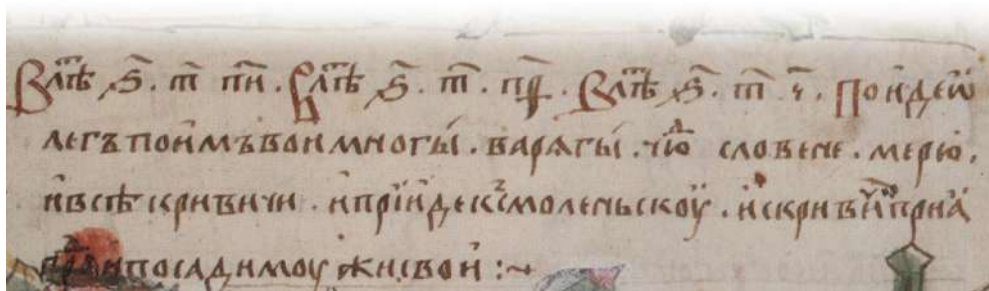 В лѣт҃ ҂ѕ҃. т҃ п҃и. В лѣт҃ ҂ѕ҃. т҃. п҃ѳ. В лѣт҃ ҂ѕ҃. т҃ ч҃. Поиде ѡ
легъ поимъ вои многы. варѧгы. чюⷣ словене. мерю.
и всѣ кривичи. и прїиде к смоленьскоу. и с кривичи приꙗ
граⷣ и посади моужи свои :~